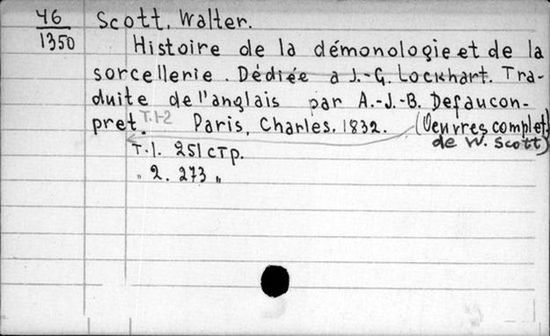 46
1350
Scott, Walter.
Histoire de la démonologie et de la
sorcellerie. Dédiée a J.-G. Lockhart. Tra-
duite de l'anglais par A.-J.-B. Defaucon-
pret. T.1-2 Paris, Charles. 1832. (Oeuvres complet.
de W. Scott)
T.1. 251 стр.
" 2. 273 "